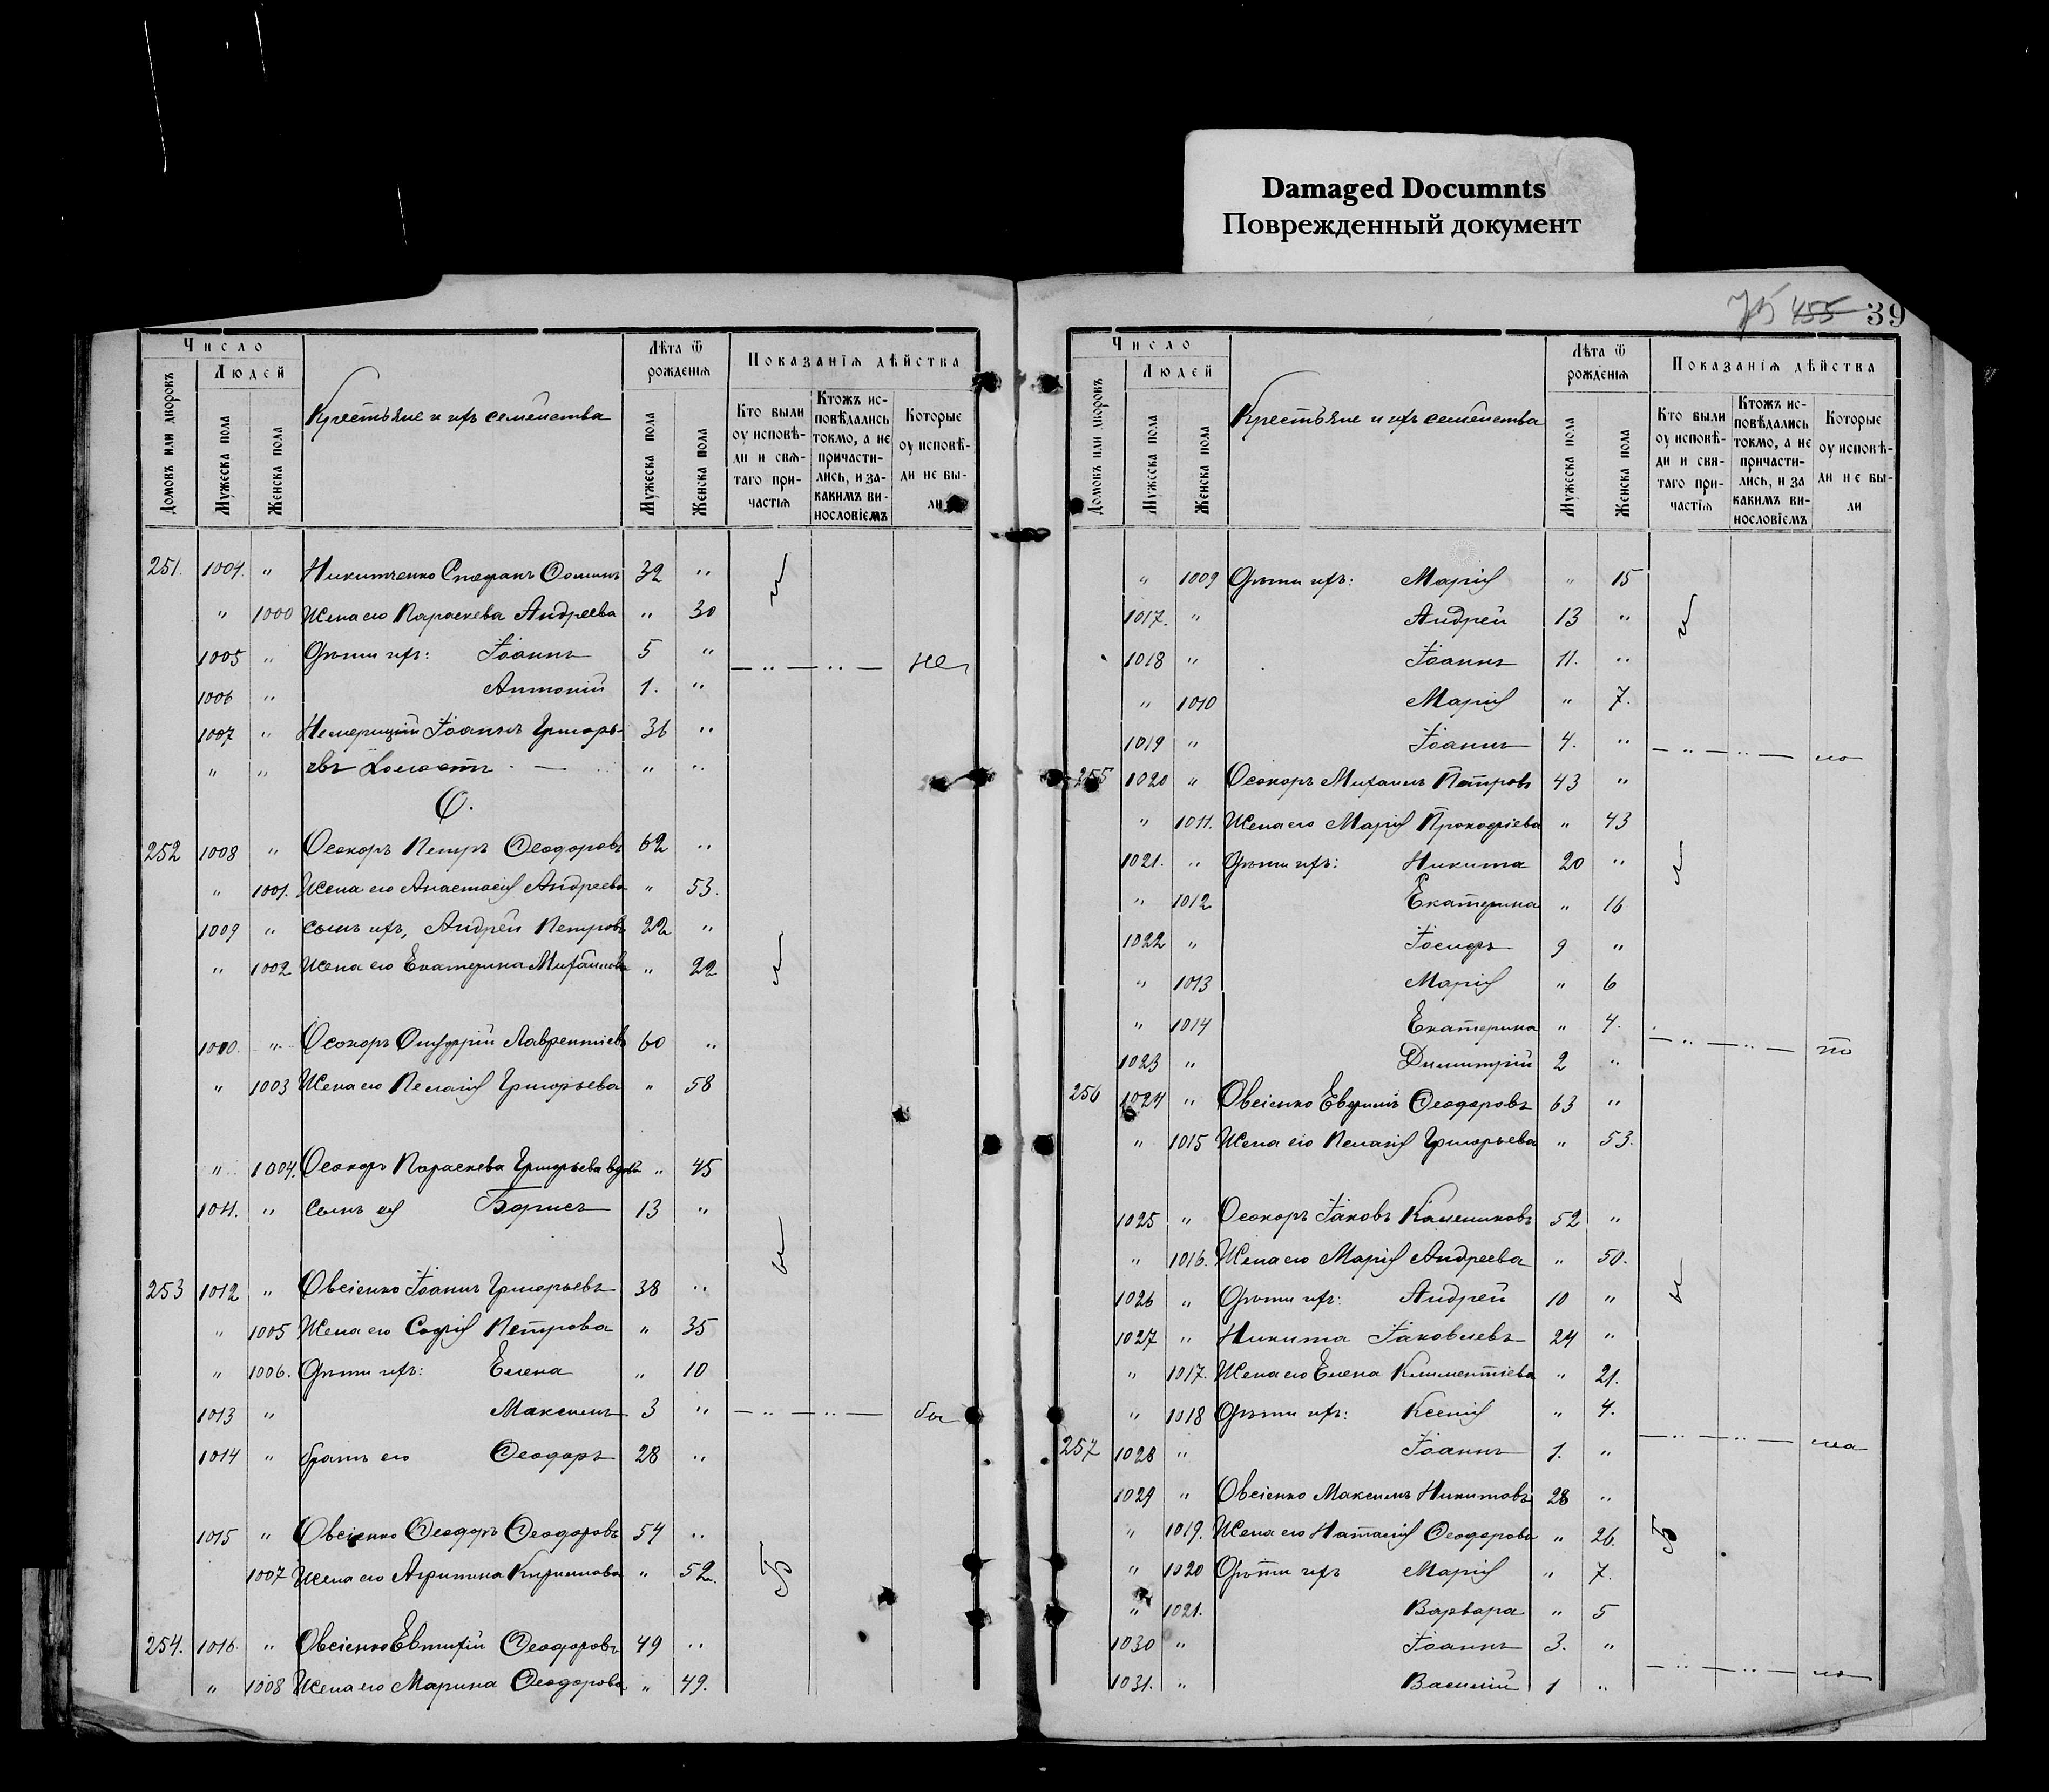 Damaged Documnts
Поврежденный документ
455 39
Число
Людей
Домовъ или дворовъ
Мужеска пола
Женска пола
Крестьяне и ихъ семейства
Лѣта ѿ рожденія
Мужеска пола
Женска пола
Показанія дѣйства
Кто были оу исповѣди и свѧтаго причастіѧ
Ктожъ исповѣдались токмо, а не причастились, и за какимъ винословіемъ
Которые оу исповѣди не были
251. 1004. " Никитченко Стефанъ Ѳоминъ 32 "
" 1000 Жена его Параскева Андреева " 30
1005 " Дѣти ихъ: Іоаннъ 5 " — " — " — не
1006 " Антоній 1. "
1007 " Немерицкій Іоаннъ Григорь- 36 "
" " евъ Холостъ " "
О.
252 1008 " Осокоръ Петръ Ѳеодоровъ 62 "
" 1001. Жена его Анастасія Андреева " 53.
1009 " сынъ ихъ, Андрей Петровъ 22 "
" 1002 Жена его Екатерина Михайлова " 22
1010. " Осокоръ Онуфрій Лаврентіевъ 60 "
" 1003 Жена его Пелагія Григорьева " 58
" 1004. Осокоръ Параскева Григорьева вдова " 45
1011. " сынъ ея Борисъ 13 "
253 1012 " Овсіенко Іоаннъ Григорьевъ 38 "
" 1005 Жена его Софія Петрова " 35
" 1006. Дѣти ихъ: Елена " 10
1013 " Максимъ 3 " — " — " — бы
1014 " братъ его Ѳеодоръ 28 "
1015 " Овсіенко Ѳеодоръ Ѳеодоровъ 54 "
1007 Жена его Агрипина Кириллова " 52.
254. 1016 " Овсіенко Евтихій Ѳеодоровъ 49 "
" 1008 Жена его Марина Ѳеодорова " 49.
Число
Людей
Домовъ или дворовъ
Мужеска пола
Женска пола
Крестьяне и ихъ семейства
Лѣта ѿ рожденія
Мужеска пола
Женска пола
Показанія дѣйства
Кто были оу исповѣди и свѧтаго причастіѧ
Ктожъ исповѣдались токмо, а не причастились, и за какимъ винословіемъ
Которые оу исповѣди не были
" 1009 Дѣти ихъ: Марія " 15
1017. " Андрей 13 "
1018 " Іоаннъ 11. "
" 1010 Марія " 7.
1019 " Іоаннъ 4. " — " — " — ло
255 1020 " Осокоръ Михаилъ Петровъ 43 "
" 1011. Жена его Марія Прокофіева " 43
1021. " Дѣти ихъ: Никита 20 "
" 1012 Екатерина " 16
1022 " Іосифъ 9 "
" 1013 Марія " 6
" 1014 Екатерина " 4. — " — " — то
1023 " Димитрій 2 "
256 1024 " Овсіенко Ефимъ Ѳеодоровъ 63 "
" 1015 Жена его Пелагія Григорьева " 53.
1025 " Осокоръ Іаковъ Калениковъ 52 "
" 1016. Жена его Марія Андреева " 50.
1026 " Дѣти ихъ: Андрей 10 "
1027 " Никита Іаковлевъ 24 "
" 1017. Жена его Елена Климентіева " 21.
" 1018 Дѣти ихъ: Ксенія " 4.
257 1028 " Іоаннъ 1. " — " — " — ма
1029 " Овсіенко Максимъ Никитовъ 28 "
" 1019. Жена его Наталія Ѳеодорова " 26.
" 1020 Дѣти ихъ Марія " 7.
" 1021. Варвара " 5
1030 " Іоаннъ 3. "
1031. " Василій 1 " — " — " — ло